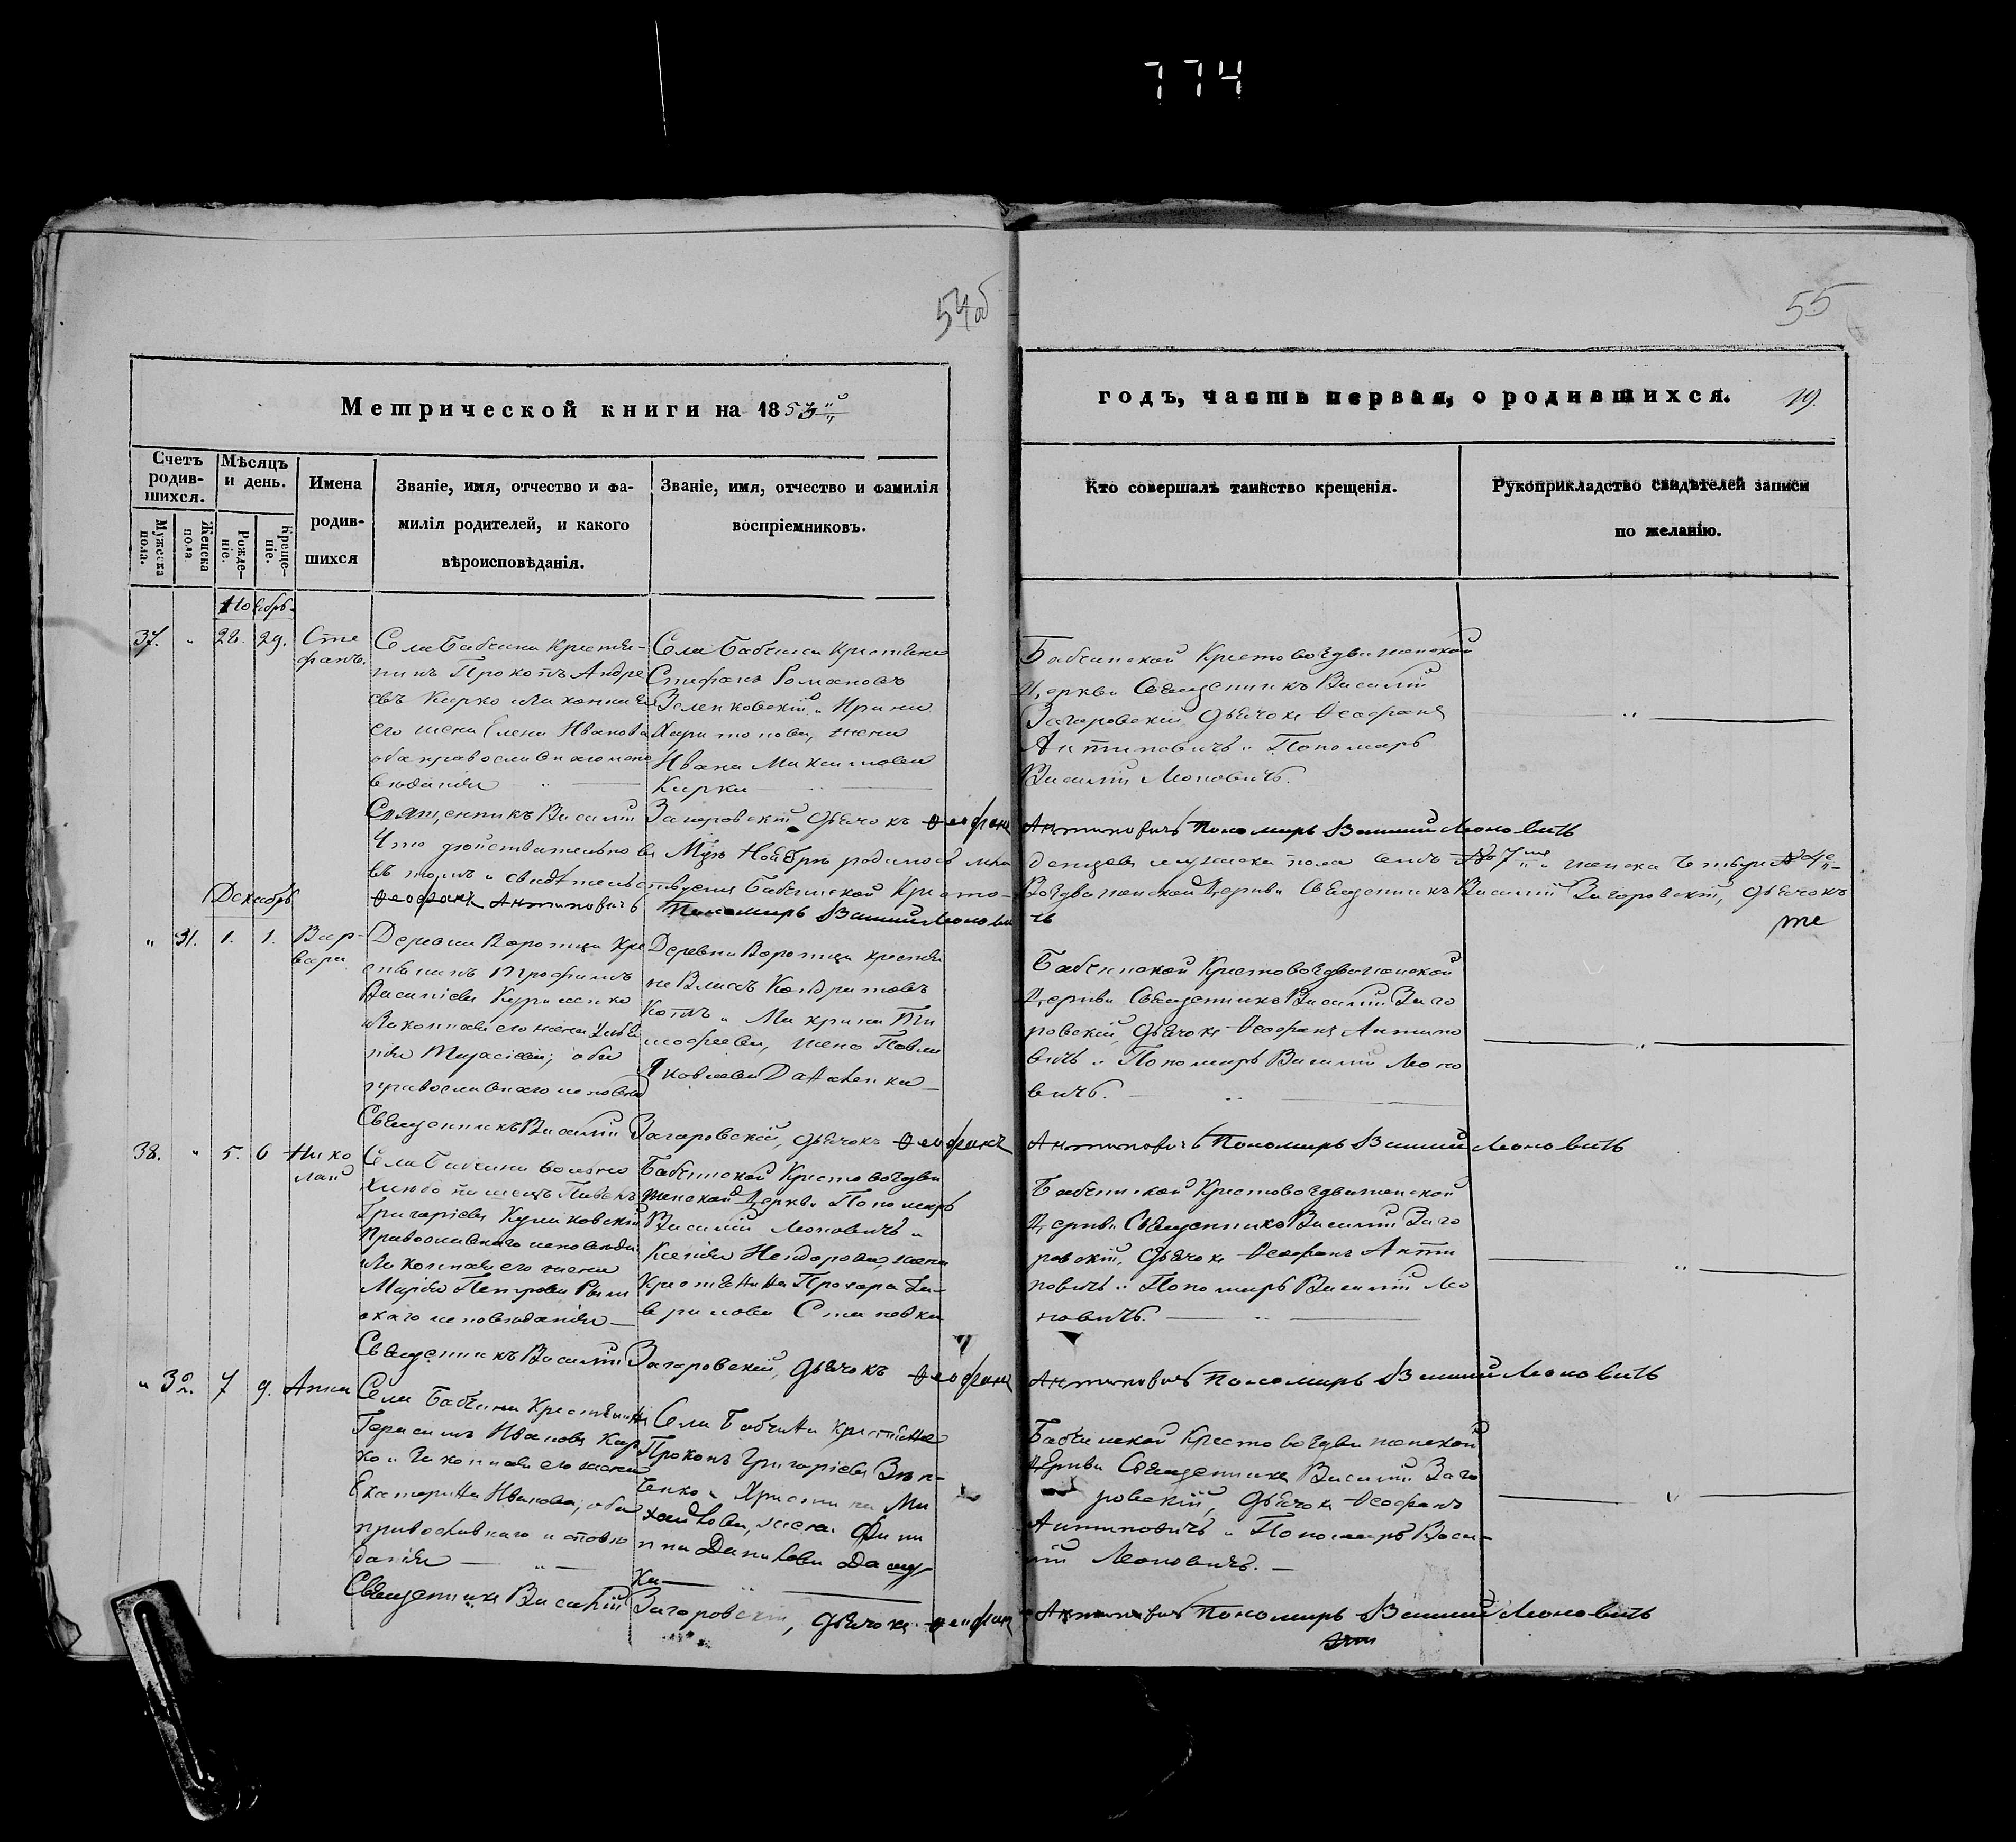 774
54об
55
Метрической книги на 1853й
годъ, часть первая, о родившихся. 19.
Счетъ родившихся.
Мужеска пола.
Женска пола
Мѣсяцъ и день.
Рожденіе.
Крещеніе.
Имена
родив-
шихся
Званіе, имя, отчество и фа-
милія родителей, и какого
вѣроисповѣданія.
Званіе, имя, отчество и фамилія
воспріемниковъ.
Кто совершалъ таинство крещенія.
Рукоприкладство свидѣтелей записи
по желанію.
Ноябрь
37. " 28. 29. Сте
фанъ.
Села Бабчина Крестья-
нинъ Прокопъ Андре
евъ Кирко и законная
его жена Елена Иванова
оба православнаго испо
вѣданія
Села Бабчина Крестьяне
Стефанъ Романовъ
Зеленковскій и Ирина
Харитонова, жена
Ивана Максимова
Кирки
Бабчинской Крестовоздвиженской
Церкви Священникъ Василій
Загоровскій, Дьячокъ Ѳеофанъ
Антиповичъ и Пономарь
Василій Моновичъ.
Священникъ Василій Загоровскій Дьячокъ Ѳеофанъ Антиповичъ Пономарь Василий Моновичь
Что дѣйствительно въ Мцѣ Ноябрѣ родилось мла
денцевъ мужеска пола семь № 7 и женска четыре № 4
въ томъ и свидѣтельствуемъ Бабчинской Кресто-
Воздвиженской Церкви Священникъ Василій Загоровскій, Дьячокъ
Ѳеофанъ Антиповичь Пономарь Василий Моновичь
Декабрь
" 31. 1. 1. Вар-
вара
Деревни Воротца Кре
стьянинъ Трофимъ
Василіевъ
Законная его жена
православнаго исповѣд
Деревни Воротца крестья
не Власъ Кондратовъ
Котъ и Макрина Ти
мофеева, жена Павла
Яковлева
Бабчинской Крестовоздвиженской
Церкви Священникъ Василій Заго
ровскій, Дьячокъ Ѳеофанъ Антипо
вичъ и Пономарь Василій Моно
вичъ.
Священникъ Василій Загоровскій, Дьячокъ Ѳеофанъ Антиповичь Пономарь Василий Моновичь
38. " 5. 6 Нико
лай
Села Бабчина вольно
хлѣбопашецъ
Григоріевъ Куликовскій
Православнаго исповѣда
Законная его жена
Марія Петрова Рим
скаго исповѣданія
Бабчинской Крестовоздви
женской Церкви Пономарь
Василій Моновичъ и
Ксенія жена
Крестьянина Прохора
Бабчинской Крестовоздвиженской
Церкви Священникъ Василій Заго
ровскій, Дьячокъ Ѳеофанъ Анти
повичъ и Пономарь Василій Мо
новичъ.
Священникъ Василій Загоровскій, Дьячокъ Ѳеофанъ Антиповичь Пономарь Василий Моновичь
" 32. 7 9. Анна
Села Бабчина Крестьянинъ
Герасимъ Ивановъ Кир
ко и законная его жена
Екатерина Иванова, оба
православнаго исповѣ
данія
Села Бабчина крестьяне
Прокопъ Григоріевъ
и Христина Ми
хайлова, жена Фили
ппа Данилова
Бабчинской Крестовоздвиженской
Церкви Священникъ Василій Заго
ровскій, Дьячокъ Ѳеофанъ
Антиповичъ и Пономарь Васи-
лій Моновичъ.
Священникъ Василій Загоровскій, Дьячокъ Ѳеофанъ Антиповичь Пономарь Василий Моновичь